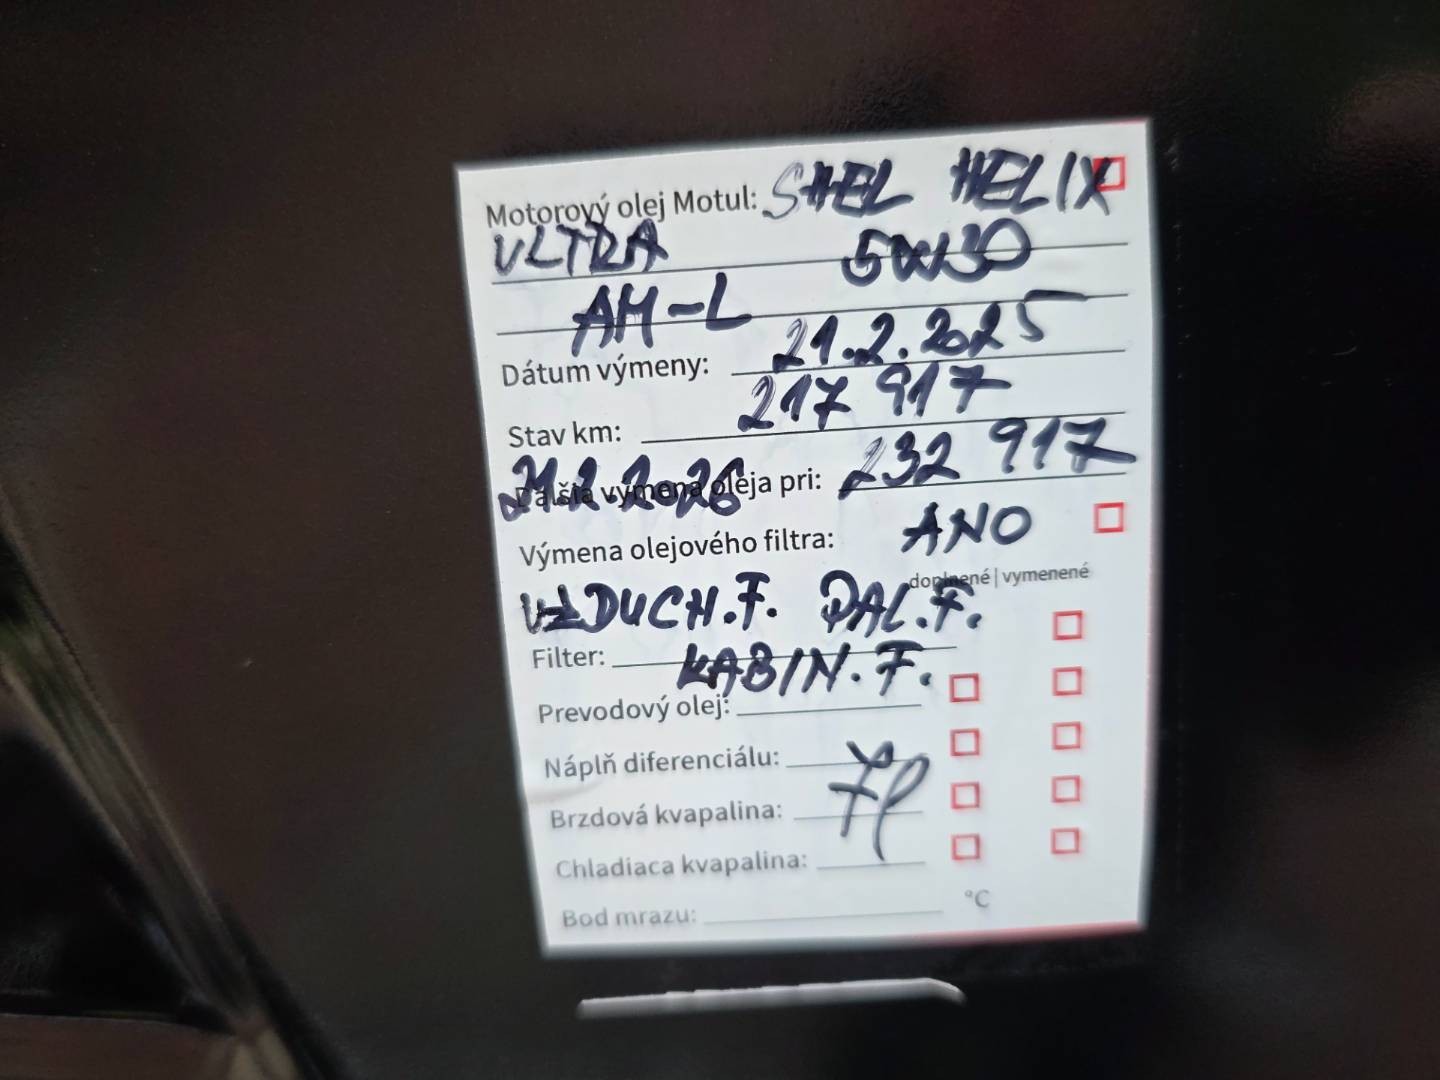 Motorový olej Motul: SHEL HELIX
ULTRA 5W30
AM-L
Dátum výmeny: 21.2.2025
Stav km: 217 917
21.2.2026 Ďalšia výmena oleja pri: 232 917
Výmena olejového filtra: ANO
doplnené | vymenené
VZDUCH.F. PAL.F.
Filter: KABIN.F.
Prevodový olej:
Náplň diferenciálu:
Brzdová kvapalina:
Chladiaca kvapalina:
Bod mrazu: °C